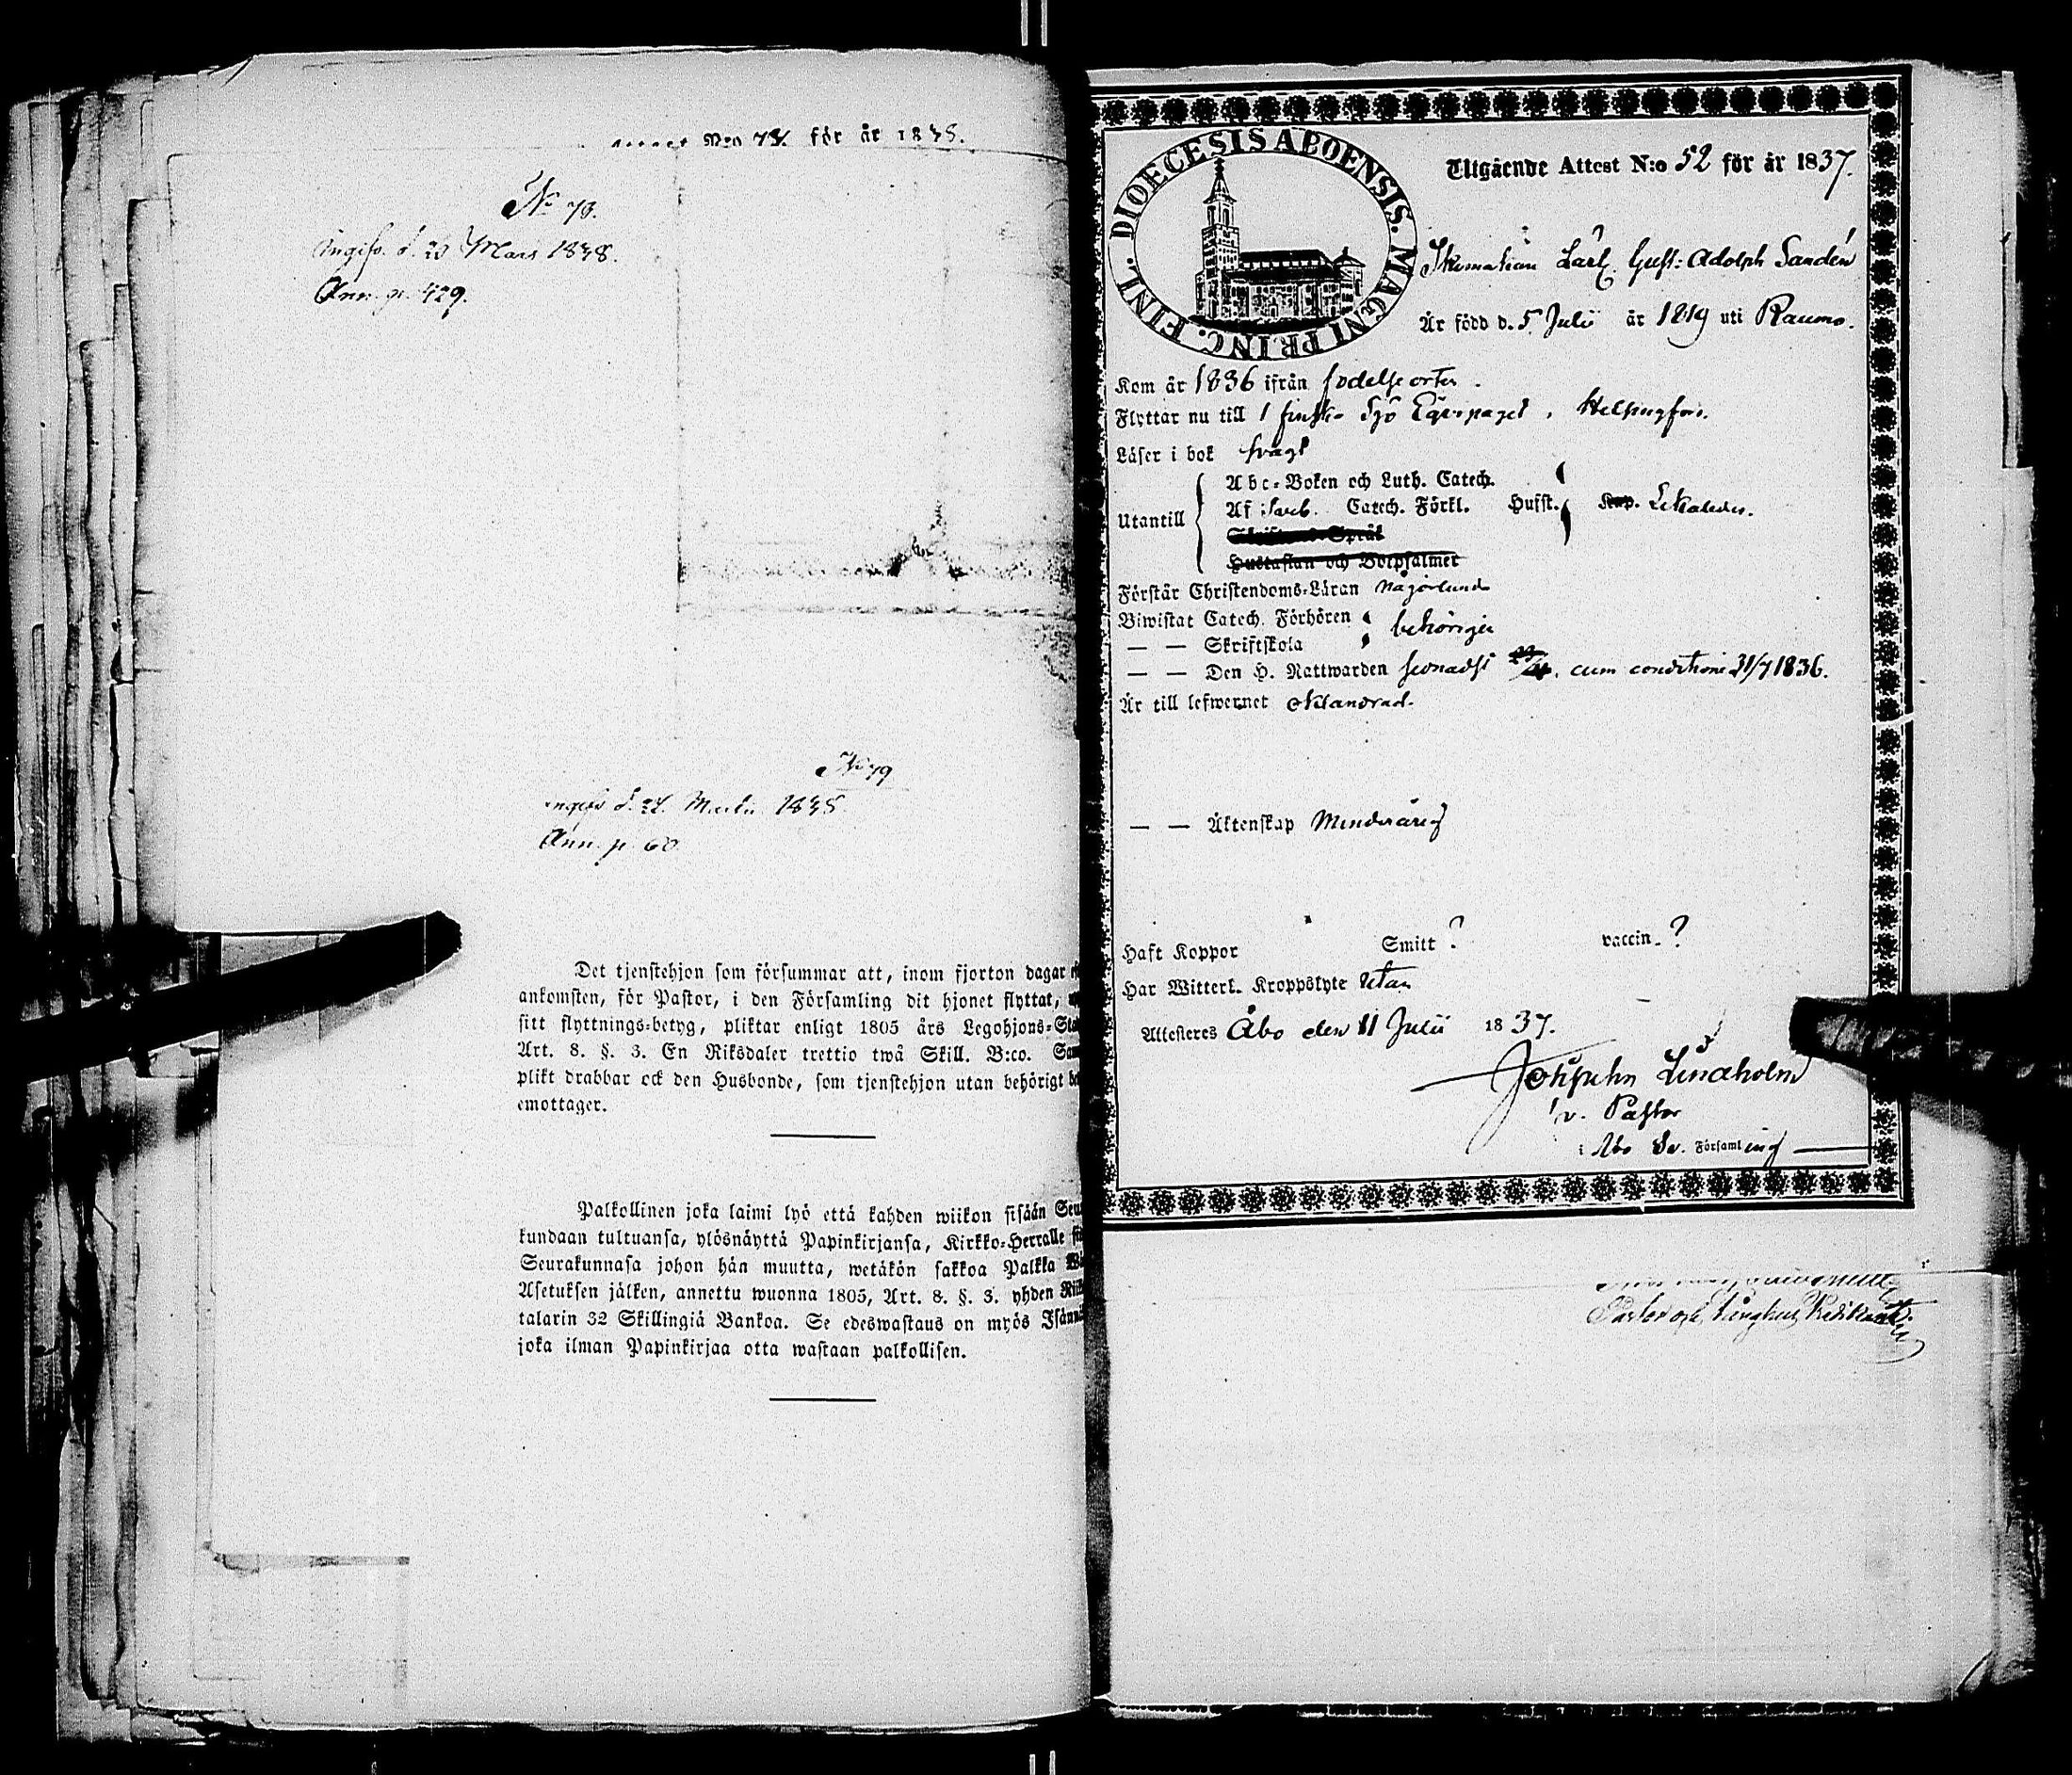 N:o 74. för år 1838.
No 73.
Ingifv. d. 20 Mars 1838.
Ann. p. 429.
No 79
d. 24. Martii 1838
Ann. p. 60.
Det tjenstehjon som försummar att, inom fjorton dagar
ankomsten, för Pastor, i den Församling dit hjonet flyttat,
sitt flyttnings-betyg, pliktar enligt 1805 års Legohjons-
Art. 8. §. 3. En Riksdaler trettio twå Skill. B:co.
plikt drabbar ock den Husbonde, som tjenstehjon utan behörigt
emottager.
Palkollinen joka laimi lyö että kahden wiikon sisään
kundaan tultuansa, ylösnäyttä Papinkirjansa, Kirkko-Herralle
Seurakunnasa johon hän muutta, wetäkön sakkoa Palkka
Asetuksen jälken, annettu wuonna 1805, Art. 8. §. 3. yhden
talarin 32 Skillingiä Bankoa. Se edeswastaus on myös
joka ilman Papinkirjaa otta wastaan palkollisen.
DIOECESIS ABOENSIS. MAGNI PRINC. FINL.
Utgående Attest N:o 52 för år 1837.
Carl Gust: Adolph Sandén
Är född d. 5 Julii år 1819 uti Raumo.
Kom år 1836 ifrån födelse orten.
Flyttar nu till 1 finska Sjö Equipaget i Helsingfors.
Läser i bok svagt
Abc-Boken och Luth. Catech.
Utantill Af Sveb. Catech. Förkl. Husst. Kap.
Språk
Hustaflan och Botpsalmer
Förstår Christendoms-Läran någorlunda
Biwistat Catech. Förhören
— — Skriftskola behörigen
— — Den H. Nattwarden senast cum conditione 31/7 1836.
Är till lefwernet oklandrad.
— — Äktenskap Minderårig
Haft Koppor Smitt ? vaccin. ?
Har Witterl. Kroppslyte utan
Attesteres Åbo den 11 Julii 1837.
Lindholm
v. Pastor
i Åbo Sv. Församling
Pastor och